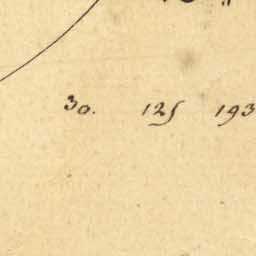 30. 125 193